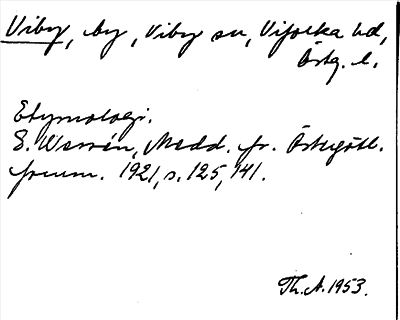 Viby, by, Viby sn, Vifolka hd,
Östg. l.
Etymologi.
E. Wessén, Medd. fr. Östergötl.
fornm. 1921, s. 125, 141.
Th. A. 1953.